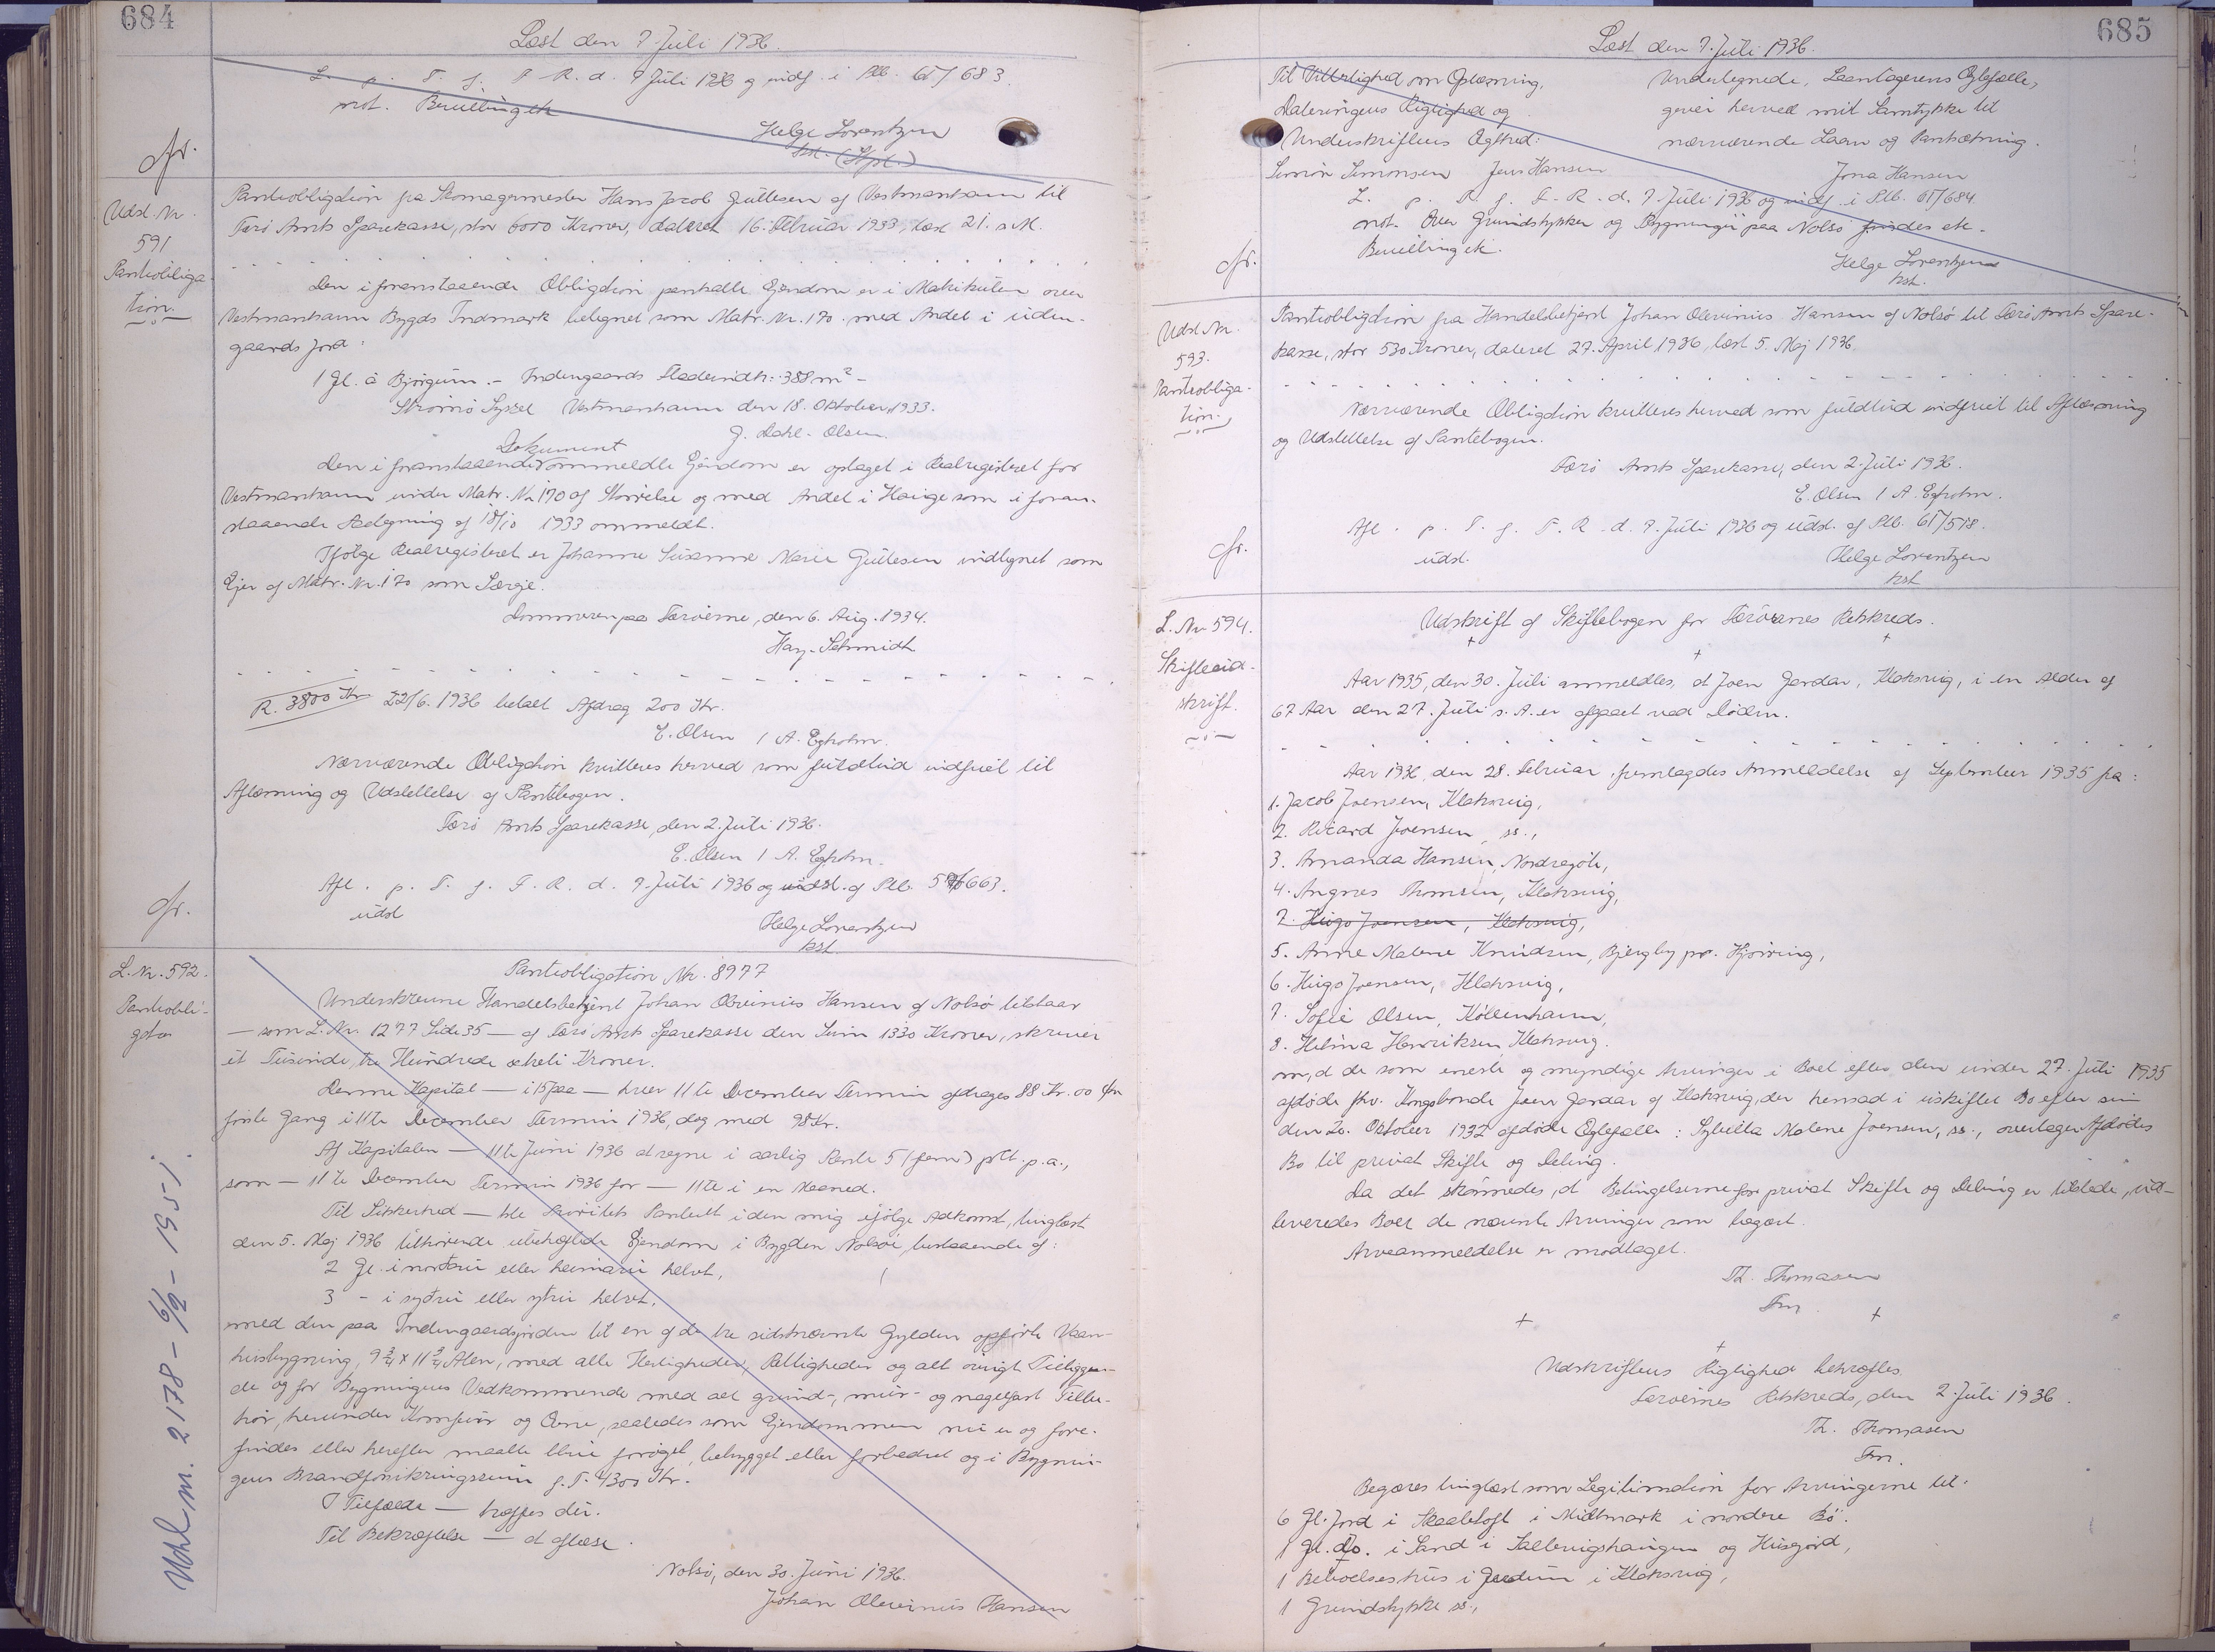 684
Læst den 7. Juli 1936.
L. p. T. f. F. R. d. 7 Juli 1936 og indf. i Ptb. 6T/683.
not. Bevilling etc
Helge Lorentzen
kst. (Stpl.)
cfr.
Udsl. Nr. 591
Pantobligation.
Pantobligation fra Skomagermester Hans Jacob Gullesen af Vestmanhavn til
Færø Amts Sparekasse, stor 6000 Kroner, dateret 16. Februar 1933, læst 21. s. M.
Den i foranstaaende Obligation pantsatte Ejendom er i Matrikulen over
Vestmanhavn Bygds Indmark betegnet som Matr. Nr. 170 med Andel i uden-
gaards Jord:
1 Gl. á Bjørgum. - Indengaards Fladeindh: 388 m² -
Strømø Syssel Vestmanhavn den 18. Oktober 1933.
J. Dahl-Olsen.
Dokument
Den i foranstaaende ommeldte Ejendom er optaget i Realregistret for
Vestmanhavn under Matr. Nr. 170 af Størrelse og med Andel i Hauge som i foran-
staaende Paategning af 18/10 1933 ommeldt.
Ifølge Realregistret er Johanne Susanne Marie Gullesen indtegnet som
Ejer af Matr. Nr. 170 som Særeje.
Dommeren paa Færøerne, den 6. Aug. 1934.
Hay-Schmidt
R. 3800 Kr 22/6. 1936 betalt Afdrag 200 Kr.
E. Olsen / A. Egholm.
Nærværende Obligation kvitteres herved som fuldtud indfriet til
Aflæsning og Udslettelse af Pantebogen.
Færø Amts Sparekasse, den 2. Juli 1936.
E. Olsen / A. Egholm.
Afl. p. T. f. F. R. d. 7. Juli 1936 og udsl. af Ptb. 663.
udsl
Helge Lorentzen
kst
cfr.
L. Nr. 592.
Pantobli-
gation
Pantobligation Nr. 8977
Underskrevne Handelsbetjent Johan Olevinius Hansen af Nolsø tilstaar
— som L. Nr. 1277 Side 35 — af Færø Amts Sparekasse den Sum 1330 Kroner, skriver
et Tusinde, tre Hundrede treti Kroner.
Denne Kapital — i 15 paa — hver 11te December Termin afdrages 88 Kr. 00 Øre
første Gang i 11te December Termin 1936, dog med 98 Kr.
Af Kapitalen — 11te Juni 1936 at regne i aarlig Rente 5 (fem) pCt. p.a.,
som — 11te December Termin 1936 for — 11te i en Maaned.
Til Sikkerhed — 1ste Prioritets Panteret i den mig ifølge Adkomst, tinglæst
den 5. Maj 1936 tilhørende ubehæftede Ejendom i Bygden Nolsø, bestaaende af:
2 Gl. i norðari eller heimaru helvt,
3 - i syðru eller ytru helvt,
med den paa Indengaardsjorden til en af de tre sidstnævnte Gylden opførte Vaan-
husbygning, 9 3/4 x 11 3/4 Alen, med alle Herligheder, Rettigheder og alt øvrigt Tilliggen-
de og for Bygningens Vedkommende med alt grund-, mur- og nagelfast Tilbe-
hør, herunder Komfur og Ovne, saaledes som Ejendommen nu er og fore-
findes eller herefter maatte blive forøget, bebygget eller forbedret og i Bygnin-
gens Brandforsikringssum p. T. 4300 Kr.
I Tilfælde — træffes der.
Til Bekræftelse — at aflæse.
Nolsø, den 30. Juni 1936.
Johan Olevinius Hansen
Udsl. m. 2178 - 6/2 - 1951.
685
Læst den 7. Juli 1936.
Til Vitterlighed om Oplæsning,
Dateringens Rigtighed og
Underskriftens Ægthed:
Simón Simonsen Jens Hansen
Undertegnede, Laantagerens Ægtefælle,
giver herved mit Samtykke til
nærværende Laan og Pantsætning.
Jona Hansen
L. p. T. f. F. R. d. 7. Juli 1936 og indf. i Ptb. 6T/684
not. Over Grundstykker og Bygninger paa Nolsø findes etc.
Bevilling etc.
Helge Lorentzen
kst.
cfr.
Udsl. Nr.
593.
Pantobliga-
tion.
Pantobligation fra Handelsbetjent Johan Olevinius Hansen af Nolsø til Færø Amts Spare-
kasse, stor 530 Kroner, dateret 27. April 1936, læst 5. Maj 1936.
Nærværende Obligation kvitteres herved som fuldtud indfriet til Aflæsning
og Udslettelse af Pantebogen.
Færø Amts Sparekasse, den 2. Juli 1936.
E. Olsen / A. Egholm.
Afl. p. T. f. F. R. d. 7. Juli 1936 og udsl. af Ptb. 6T/578.
udsl.
Helge Lorentzen
kst
cfr.
L. Nr. 594.
Skifteud-
skrift.
Udskrift af Skiftebogen for Færøernes Retskreds.
Aar 1935, den 30. Juli anmeldtes, at Joen Gardar, Klaksvig, i en Alder af
67 Aar den 27. Juli s. A. er afgaaet ved Døden.
Aar 1936, den 28. Februar, fremlagdes Anmeldelse af September 1935 fra:
1. Jacob Joensen, Klaksvig,
2. Ricard Joensen, ss.,
3. Amanda Hansen, Nordragøte,
4. Angnes Thomsen, Klaksvig,
7. Hugo Joensen, Klaksvig,
5. Anne Malene Knudsen, Bjergby pr. Hjørring,
6. Hugo Joensen, Klaksvig,
7. Sofie Olsen, København,
8. Helina Henriksen, Klaksvig.
om, at de som eneste og myndige Arvinger i Boet efter den under 27. Juli 1935
afdøde fhv. Kongsbonde Joen Gardar af Klaksvig, der hensad i uskiftet Bo efter sin
den 26. Oktober 1932 afdøde Ægtefælle: Sybilla Malene Joensen, ss., overtager Afdødes
Bo til privat Skifte og Deling.
Da det skønnedes, at Betingelserne for privat Skifte og Deling er tilstede, ud-
leveredes Boet de nævnte Arvinger som begært.
Arveanmeldelse er modtaget.
Th. Thomasen
Fm.
Udskriftens Rigtighed bekræftes.
Færøernes Retskreds, den 2. Juli 1936.
Th. Thomasen
Fm.
Begæres tinglæst som Legitimation for Arvingerne til:
6 Gl. Jord i Skaaletoft i Midtmark i nordere Bø.
1 Gl. do. i Sand i Sallervigshaugen og Husejord,
1 Beboelseshus i Gerdum i Klaksvig,
1 Grundstykke ss.,